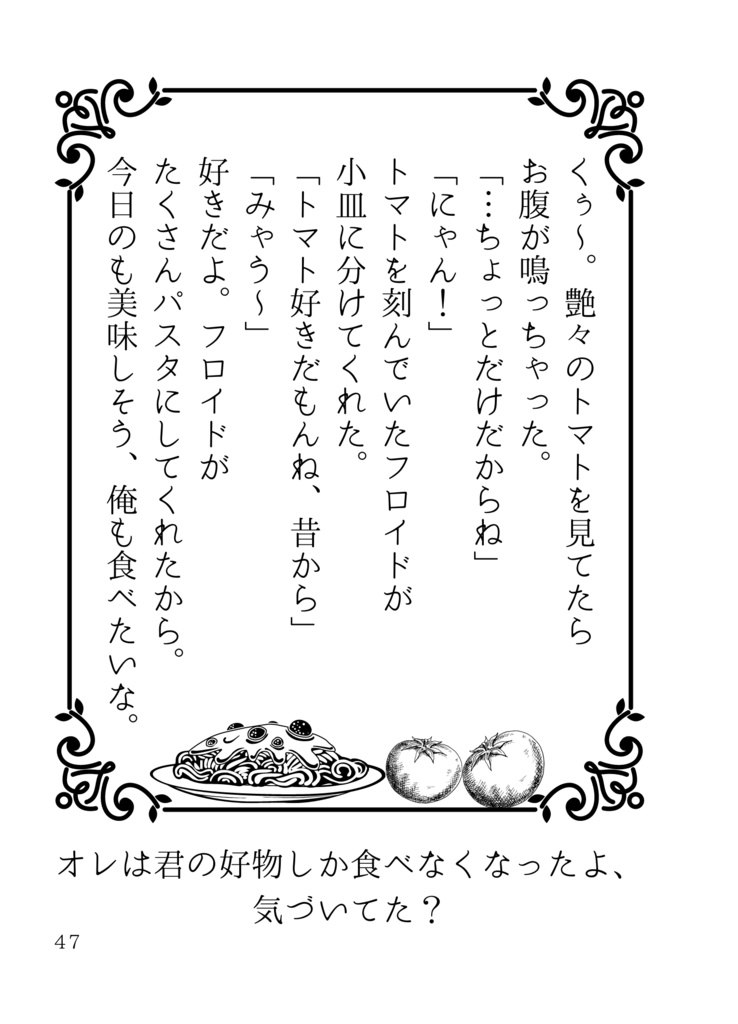 くぅ～。艶々のトマトを見てたら
お腹が鳴っちゃった。
「…ちょっとだけだからね」
「にゃん！」
トマトを刻んでいたフロイドが
小皿に分けてくれた。
「トマト好きだもんね、昔から」
「みゃう～」
好きだよ。フロイドが
たくさんパスタにしてくれたから。
今日のも美味しそう、俺も食べたいな。
オレは君の好物しか食べなくなったよ、
気づいてた？
47